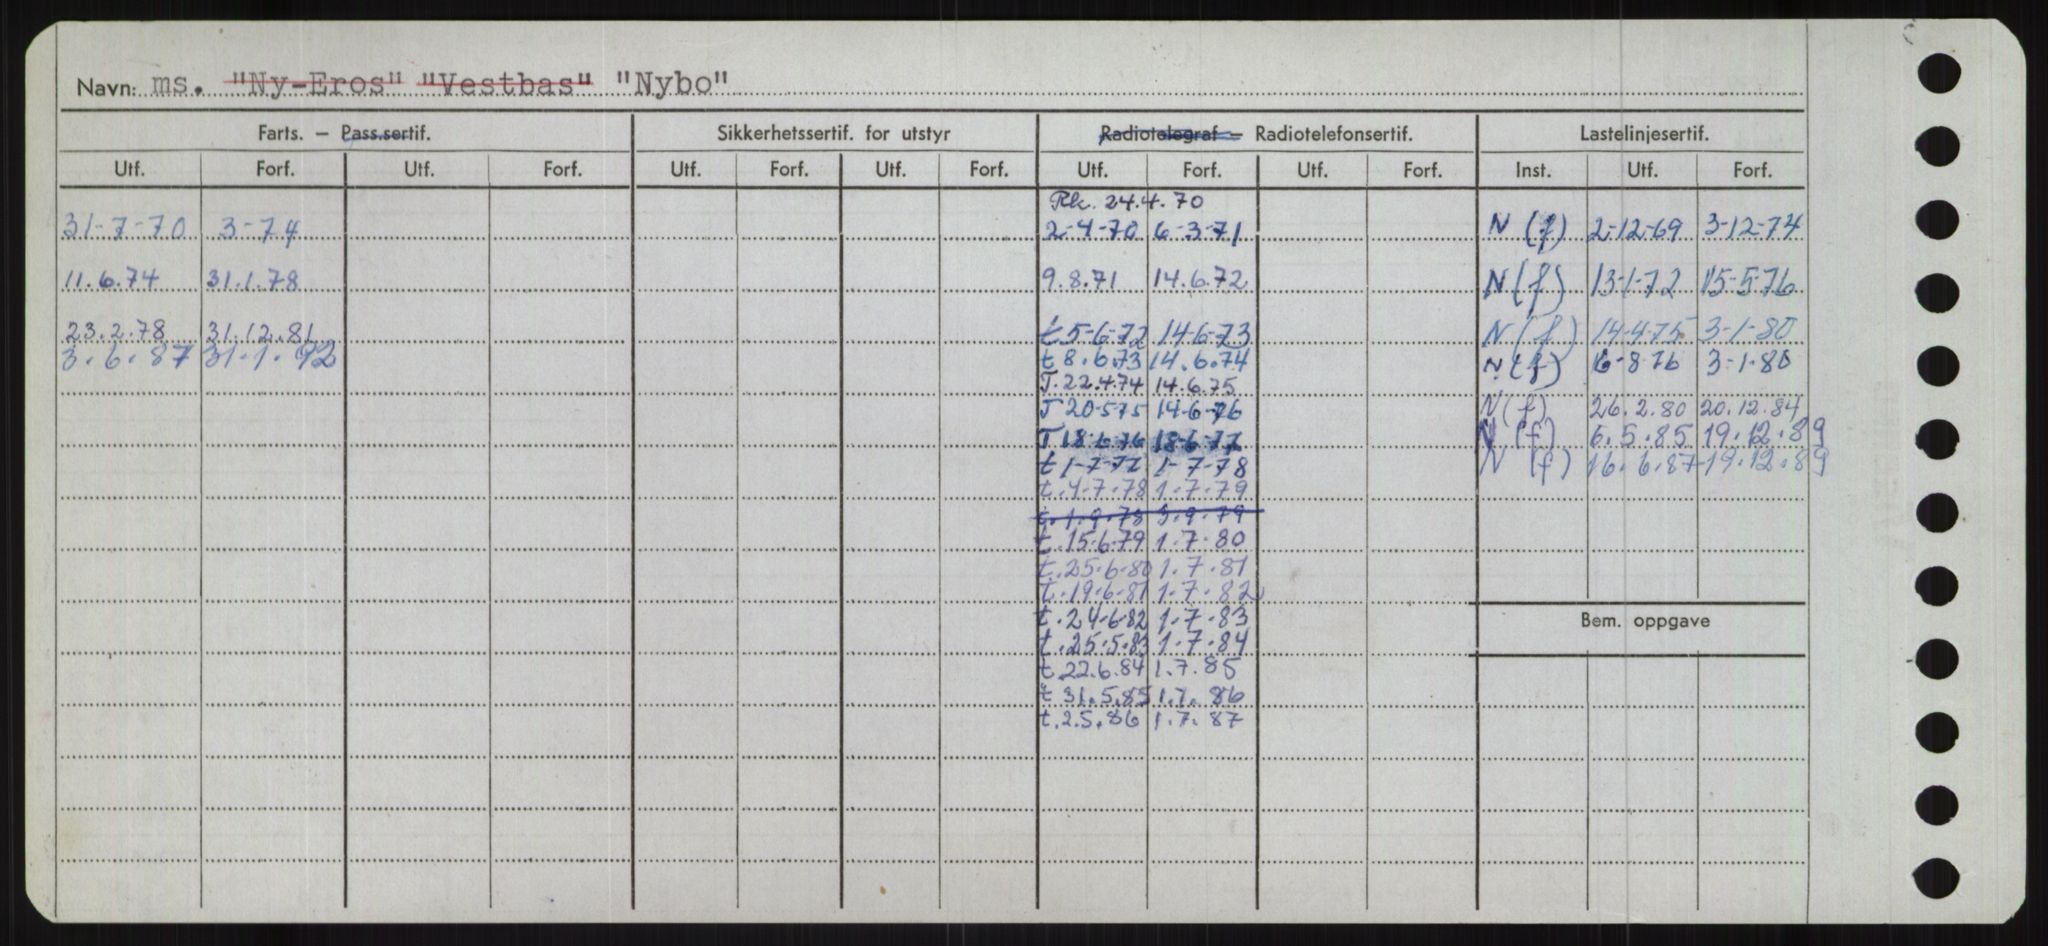 Navn: ms. "Ny-Eros" "Vestbas" "Nybo"
Farts. — Pass.sertif. Sikkerhetssertif. for utstyr Radiotelegraf — Radiotelefonsertif. Lastelinjesertif.
Utf. Forf. Utf. Forf. Utf. Forf. Utf. Forf. Utf. Forf. Utf. Forf. Inst. Utf. Forf.
24.4.70
31-7-70 3-74 2-4-70 6-3-71 N (f) 2-12-69 3-12-74
11.6.74 31.1.78 9.8.71 14.6.72 N (f) 13-1-72 15-5-76
23.2.78 31.12.81 t 5-6-72 14-6-73 N (f) 14-4-75 3-1-80
3.6.87 31.1.92 t 8.6.73 14.6.74 N (f) 6-8-76 3-1-80
T.22.4.74 14.6.75
T 20-5-75 14-6-76 N (f) 26.2.80 20.12.84
T 18-6-76 18-6-77 N (f) 6.5.85 19.12.89
t 1-7-77 1-7-78 N (f) 16.6.87 19.12.89
t.4.7.78 1.7.79
t.1.9.78 3.9.79
t.15.6.79 1.7.80
t.25.6.80 1.7.81
t.19.6.81 1.7.82
t.24.6.82 1.7.83
Bem. oppgave
t.25.5.83 1.7.84
t 22.6.84 1.7.85
t 31.5.85 1.7.86
t.2.5.86 1.7.87